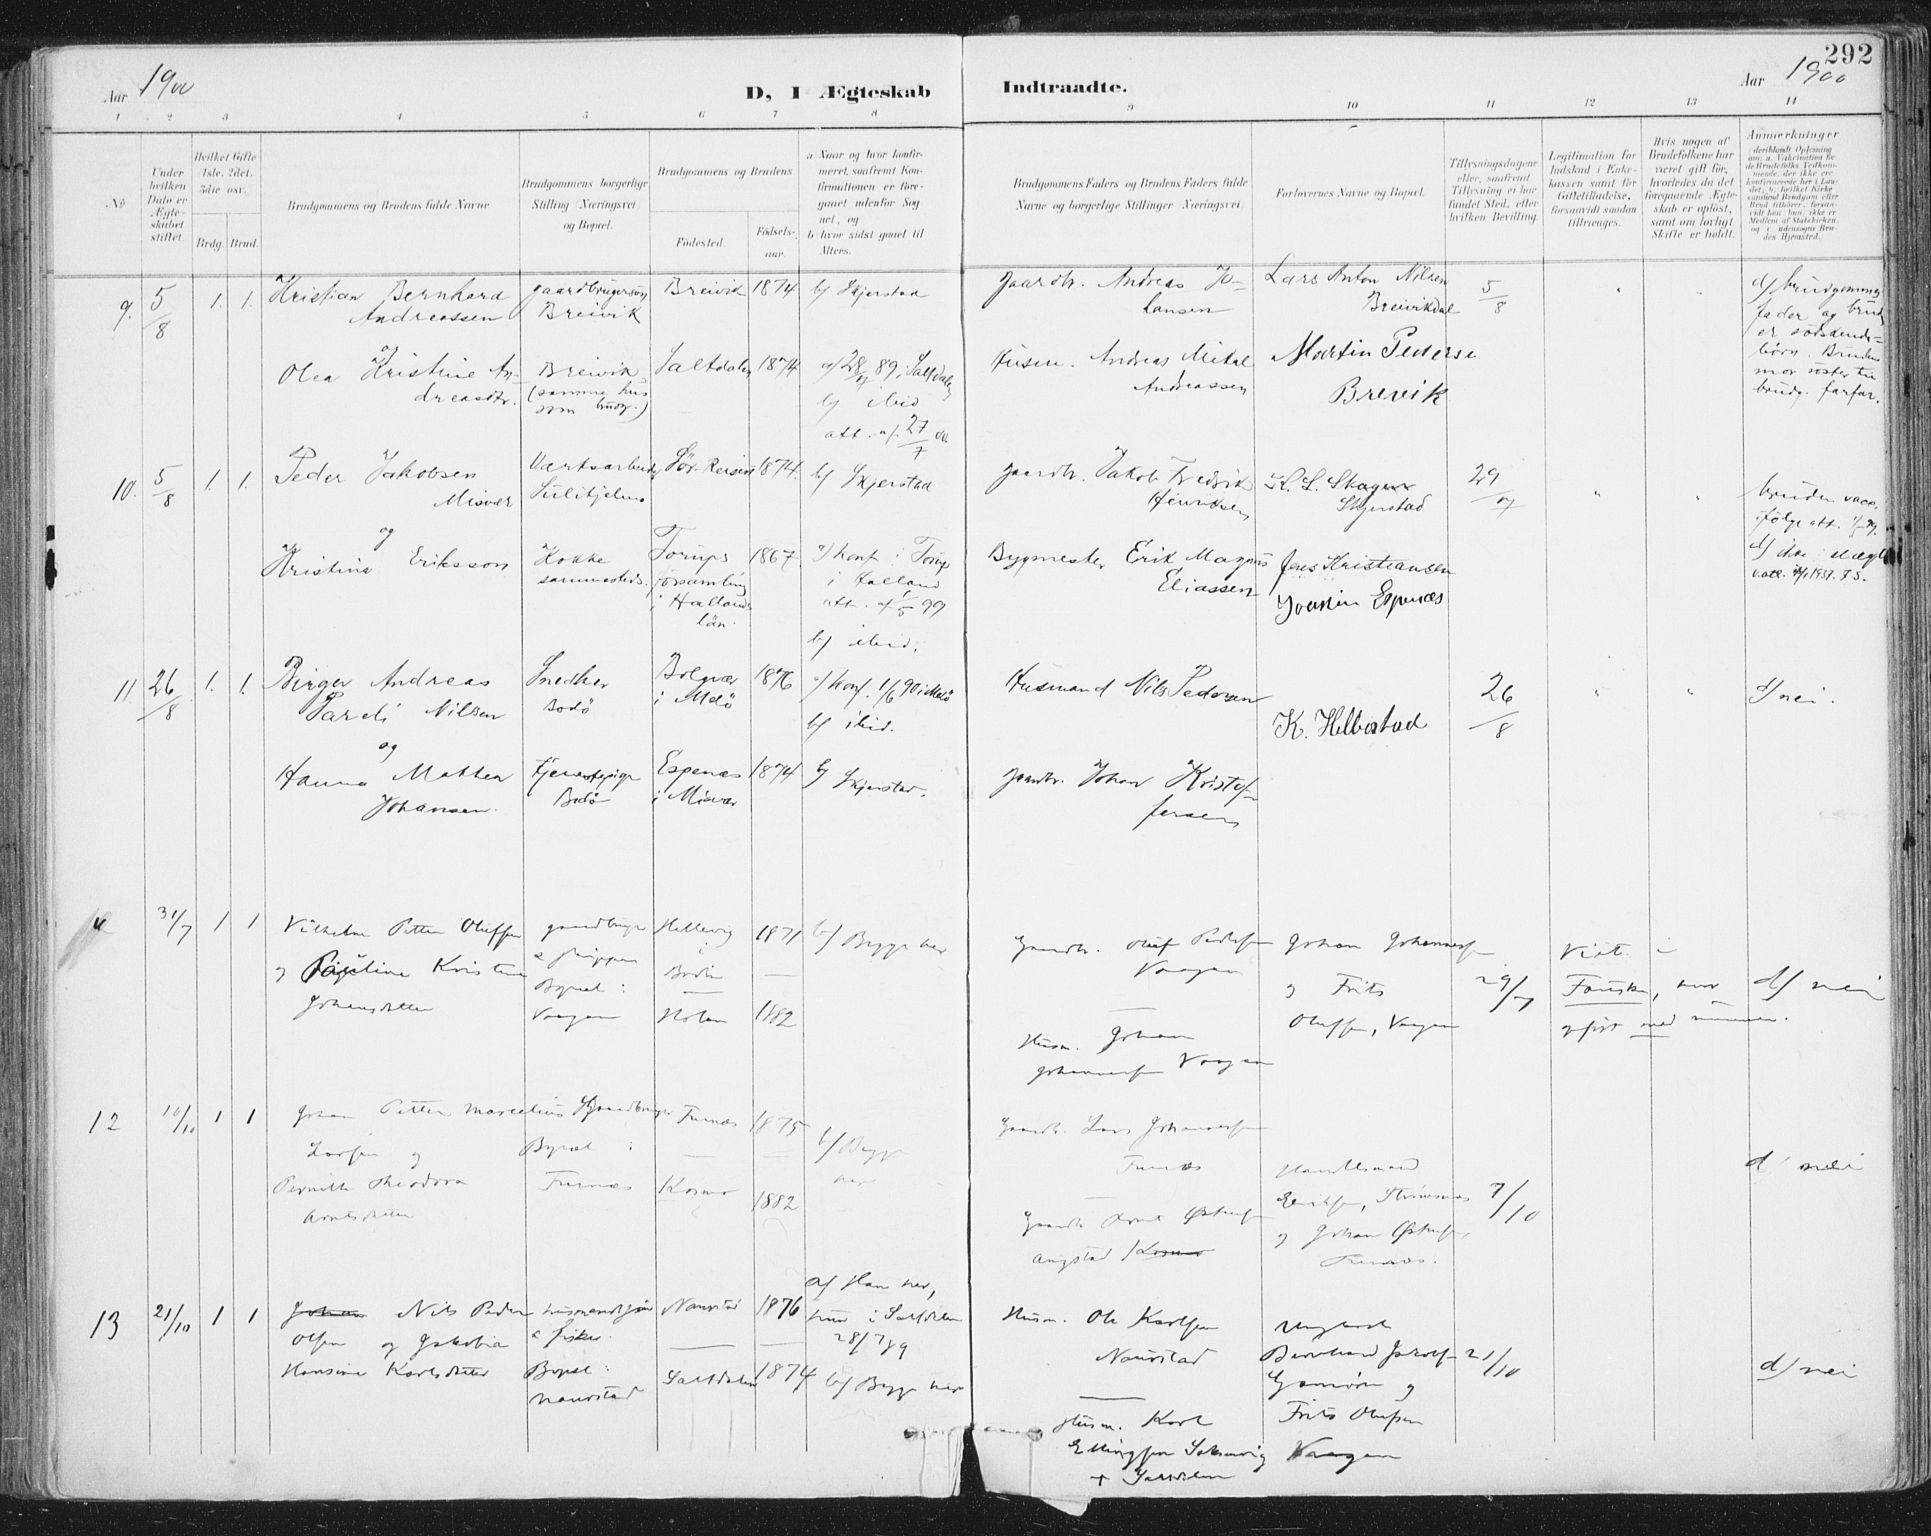 292
Aar 1900
D, I Ægteskab Indtraadte.
Aar 1900
1 2 3 4 5 6 7 8 9 10 11 12 13 14
No
Under hvilken Dato er Ægteskabet stiftet.
Hvilket Gifte 1ste, 2det, 3die osv.
Brdg. Brud.
Brudgommens og Brudens fulde Navne
Brudgommens borgerlige Stilling (Næringsvei) og Bopæl.
Brudgommens og Brudens
Fødested.
Fødselsaar.
a Naar og hvor konfirmeret, saafremt Konfirmationen er foregaaet udenfor Sognet, og
b hvor sidst gaaet til Alters.
Brudgommens Faders og Brudens Faders fulde Navne og borgerlige Stillinger (Næringsvei)
Forlovernes Navne og Bopæl.
Tillysningsdagene eller, saafremt Tillysning ei har fundet Sted, efter hvilken Bevilling.
Legitimation for Indskud i Enkekassen samt for Giftetilladelse, forsaavidt saadan tiltrænges.
Hvis nogen af Brudefolkene har været gift før, hvorledes da det foregaaende Ægteskab er opløst, samt om lovligt Skifte er holdt.
Anmerkninger
9. 5/8 1. 1. Kristian Bernhard Andreassen
gaardbrugersøn Breivik
Breivik 1874 b/ Skjerstad
gaardbr. Andreas Johansen
Lars Anton Nilsen Breivikdal
5/8
d/ brudgommens fader og brud er søskendebørn. Brudens mor søster til brudg. farfar.
og
Olea Kristine Andreasdtr.
Breivik (samme hus som brudg.)
Saltdalen 1874 a/ 28/7 89 i Saltdalen b/ ibid att. af 27/7 00
Husm. Andreas Mikal Andreassen
Martin Pederse Breivik
10. 5/8 1. 1. Peder Jakobsen Misvær
Sulitjelma
1874. b/ Skjerstad
gaardbr. Jakob Fredrik Henriksen
Skjerstad
29/7
og
Kristina Eriksson
Kokke sammesteds.
Torups församling i Hallands län.
1867. a/ konf. i Torup i Halland att. af 1/5 99 b/ ibid.
Bygmester Erik Magnus Eliassen
Jens Kristiansen
Joakim Espenæs
11. 26/8 1. 1. Birger Andreas Pareli Nilsen
Snedker Bodø
Bolgvær i Melø
1876 a/ konf. 1/6 90 i Melø b/ ibid.
Husmand Nils Pedersen
K. Helbostad
26/8
d/ nei.
og
Hanna Mathea Johansen.
Tjenestepige Bodø
Espenæs i Misvær
1874 b/ Skjerstad.
gaardbr. Johan Kristoffersen
31/7 1 1 Vilhelm Petter Olufsen
og Pauline Kristine Johansdatter
gaardbruger & skipper Bopæl: Vaagan
1871 b/ Begge her
Bodin
Holm 1882
Gaardb. Oluf Pedersen Vaagan
Husm. Johan Johannessen Vaagan
Johan Johannessen og Frits Olufsen, Vaagan
29/7
Viet i Fauske, hvor
d/ nei
12 10/10 1 1 Johan Petter Marcelius Larsen og
Pernille Theodora Arntsdatter
Gaardbruger Bopæl: Furnæs
Furnæs 1875 b/ Begge her
Kosmo 1882
Gaardb. Lars Johannessen Furnæs
Gaardb. Arnt Østensen Angstad / Kosmo
Handelsmand Eriksen, Strømsnæs og Johan Østensen, Furnæs.
7/10
d/ nei
13 21/10 1 1 Johan Nils Peder Olsen og Jakobia
Hansine Karlsdatter
husmandssøn & fisker. Bopæl: Naurstad
Naurstad 1876
Saltdalen 1874
a/ Han her, hun i Saltdalen 28/7 89
b/ Begge her
Husm. Ole Karlsen Naurstad
Husm. Karl Ellingsen Saksenvig + Saltdalen
Ungkarl Bernhard Jakobs. og
Frits Olufsen Vaagan
21/10
d/ nei